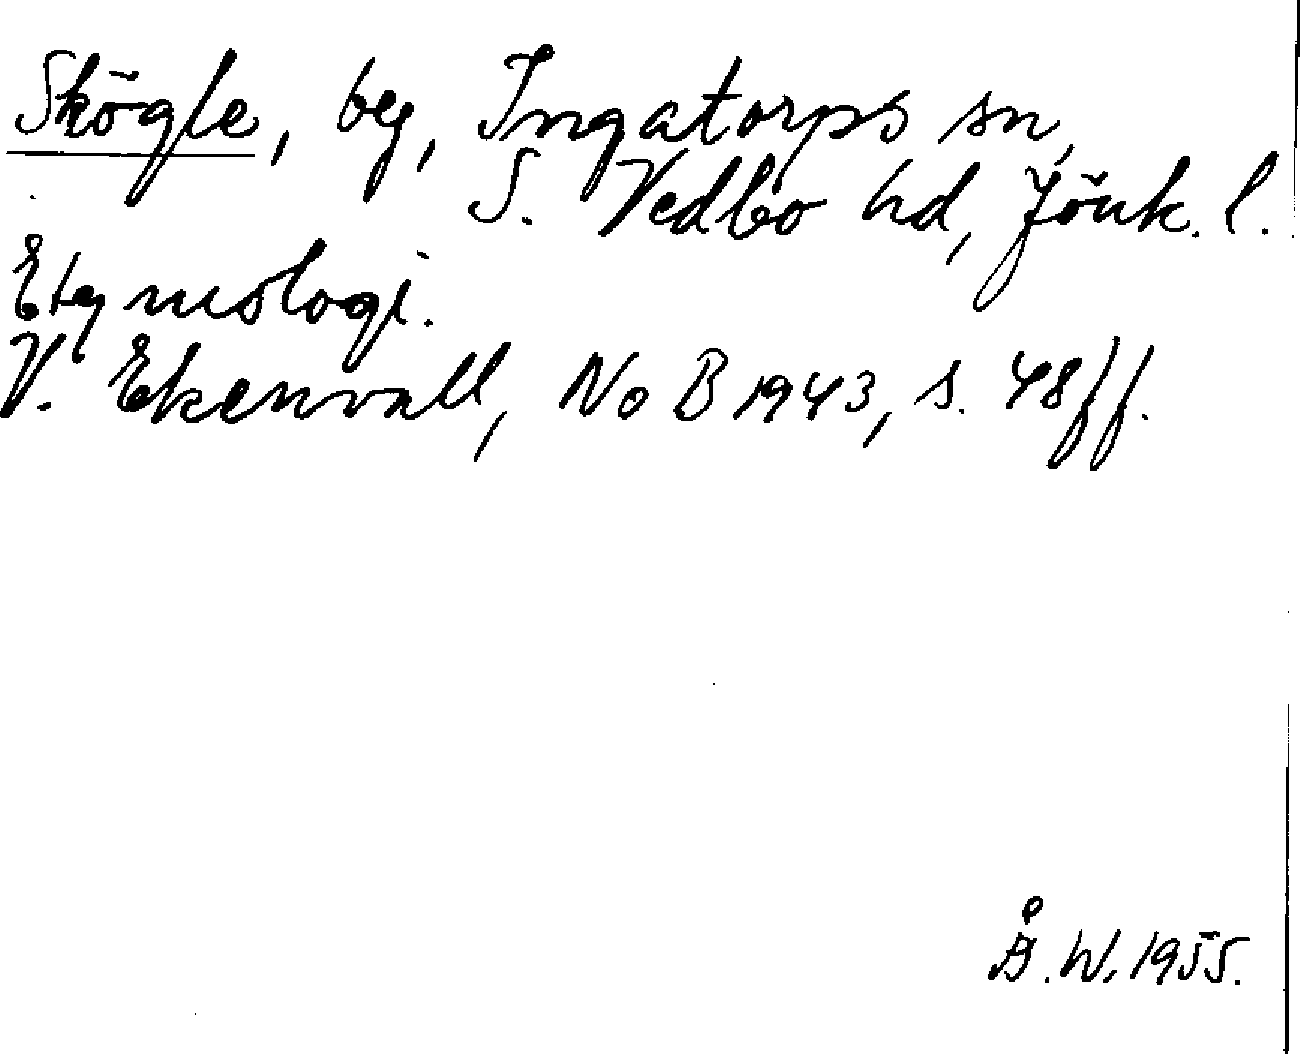 Skögle, by, Ingatorps sn,
S. Vedbo hd, Jönk. l.
Etymologi.
V. Ekenvall, NoB 1943, s. 48 ff.
Å.W. 1955.